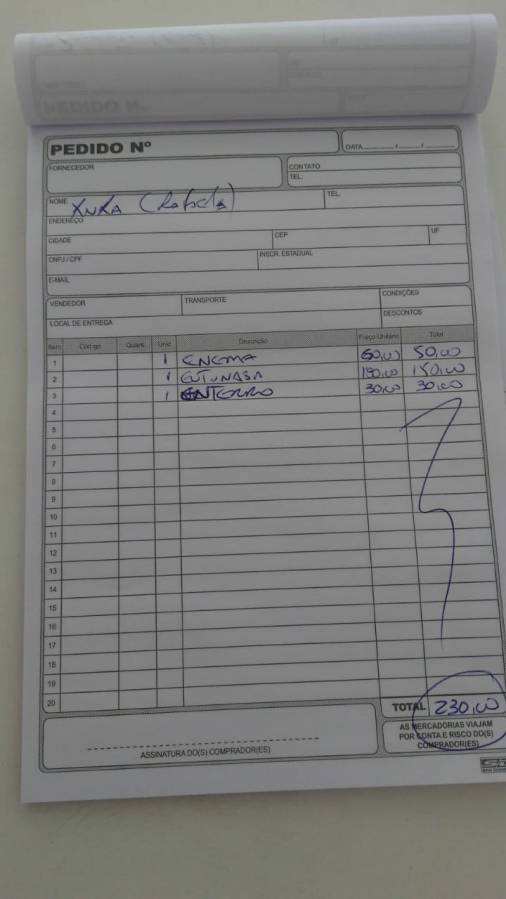 PEDIDO Nº
DATA ____/____/____
FORNECEDOR
CONTATO
TEL.
NOME XNXA (Rafaela) TEL.
ENDEREÇO
CIDADE CEP UF
CNPJ / CPF INSCR. ESTADUAL
E-MAIL
VENDEDOR TRANSPORTE CONDIÇÕES
LOCAL DE ENTREGA DESCONTOS
Item Código Quant. Unid. Descrição Preço Unitário Total
1 1 ENEMA 50,00
2 1 150,00
3 1 30,00 30,00
4
5
6
7
8
9
10
11
12
13
14
15
16
17
18
19
20
TOTAL 230,00
AS MERCADORIAS VIAJAM
POR CONTA E RISCO DO(S)
COMPRADOR(ES)
ASSINATURA DO(S) COMPRADOR(ES)